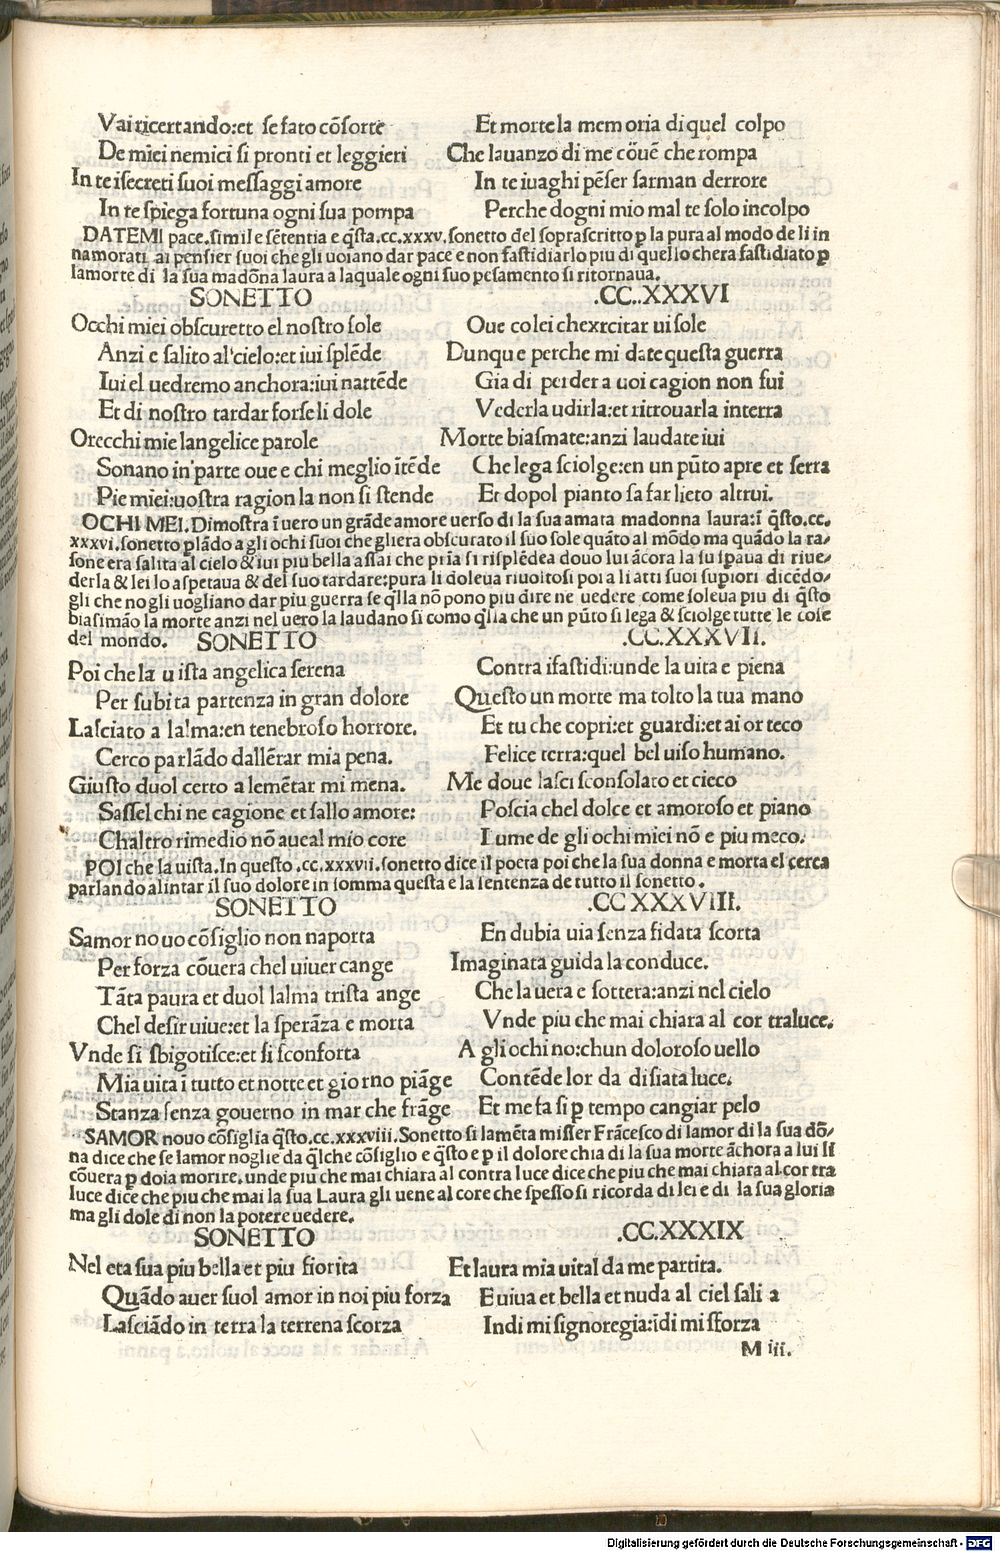 Vai ricercando:et se fato cõsorte
De miei nemici si pronti et leggieri
In te isecreti suoi messaggi amore
In te spiega fortuna ogni sua pompa
Et morte la memoria di quel colpo
Che lauanzo di me cõuẽ che rompa
In te iuaghi pẽser sarman derrore
Perche dogni mio mal te solo incolpo
DATEMI pace.simile sẽtentia e q̃sta.cc.xxxv.sonetto del soprascritto ꝑ la pura al modo de li in
namorati ai pensier suoi che gli uoiano dar pace e non fastidiarlo piu di quello chera fastidiato ꝑ
lamorte di la sua madõna laura a laquale ogni suo pesamento si ritornaua.
SONETTO .CC..XXXVI
Occhi miei obscuretto el nostro sole
Anzi e salito al cielo:et iui splẽde
Iui el uedremo anchora:iui nattẽde
Et di nostro tardar forse li dole
Orecchi mie langelice parole
Sonano in parte oue e chi meglio itẽde
Pie miei:uostra ragion la non si stende
Oue colei chexrcitar ui sole
Dunque perche mi date questa guerra
Gia di perder a uoi cagion non fui
Vederla udirla:et ritrouarla interra
Morte biasmate:anzi laudate iui
Che lega sciolge:en un pũto apre et serra
Et dopol pianto sa far lieto altrui.
OCHI MEI. Dimostra ĩ uero un grãde amore uerso di la sua amata madonna laura:ĩ q̃sto.cc.
xxxvi.sonetto ꝑlãdo a gli ochi suoi che gliera obscurato il suo sole quãto al mõdo ma quãdo la ra/
sone era salita al cielo & iui piu bella assai che pria si risplẽdea douo lui ãcora la su spaua di riue/
derla & lei lo aspetaua & del suo tardare:pura li doleua riuoltosi poi a li atti suoi suꝑiori dicẽdo/
gli che no gli uogliano dar piu guerra se q̃lla nõ pono piu dire ne uedere come soleua piu di q̃sto
biasimão la morte anzi nel uero la laudano si como q̃lla che un pũto si lega & sciolge tutte le cose
del mondo. SONETTO .CC.XXXVII.
Poi che la uista angelica serena
Per subita partenza in gran dolore
Lasciato a lalma:en tenebroso horrore.
Cerco parlãdo dallẽrar mia pena.
Giusto duol certo a lemẽtar mi mena.
Sassel chi ne cagione et sallo amore:
Chaltro rimedio nõ aueal mio core
Contra ifastidi:unde la uita e piena
Questo un morte ma tolto la tua mano
Et tu che copri:et guardi:et ai or teco
Felice terra:quel bel uiso humano.
Me doue lasci sconsolato et cieco
Poscia chel dolce et amoroso et piano
Lume de gli ochi miei nõ e piu meco.
POI che la uista. In questo .cc.xxxvii.sonetto dice il poeta poi che la sua donna e morta el cerca
parlando alintar il suo dolore in somma questa e la sentenza de tutto il sonetto.
SONETTO .CC XXXVIII.
Samor nouo cõsiglio non naporta
Per forza cõuera chel uiuer cange
Tãta paura et duol lalma trista ange
Chel desir uiue:et la sperãza e morta
Vnde si sbigotisce:et si sconforta
Mia uita ĩ tutto et notte et giorno piãge
Stanza senza gouerno in mar che frãge
En dubia uia senza fidata scorta
Imaginata guida la conduce.
Che la uera e sottera:anzi nel cielo
Vnde piu che mai chiara al cor traluce.
A gli ochi no:chun doloroso uello
Contẽde lor da disiata luce.
Et me fa si ꝑ tempo cangiar pelo
SAMOR nouo cõsiglia q̃sto.cc.xxxviii.Sonetto si lamẽta misser Frãcesco di lamor di la sua dõ/
na dice che se lamor noglie da q̃lche cõsiglio e q̃sto e ꝑ il dolore chia di la sua morte ãchora a lui li
cõuera ꝑ doia morire.unde piu che mai chiara al contra luce dice che piu che mai chiara al cor tra
luce dice che piu che mai la sua Laura gli uene al core che spesso si ricorda di lei e di la sua gloria
ma gli dole di non la potere uedere.
SONETTO .CC.XXXIX
Nel eta sua piu bella et piu fiorita
Quãdo auer suol amor in noi piu forza
Lasciãdo in terra la terrena scorza
Et laura mia uital da me partita.
E uiua et bella et nuda al ciel salia
Indi mi signoregia:ĩdi mi sforza
M iii.
Digitalisierung gefördert durch die Deutsche Forschungsgemeinschaft - DFG